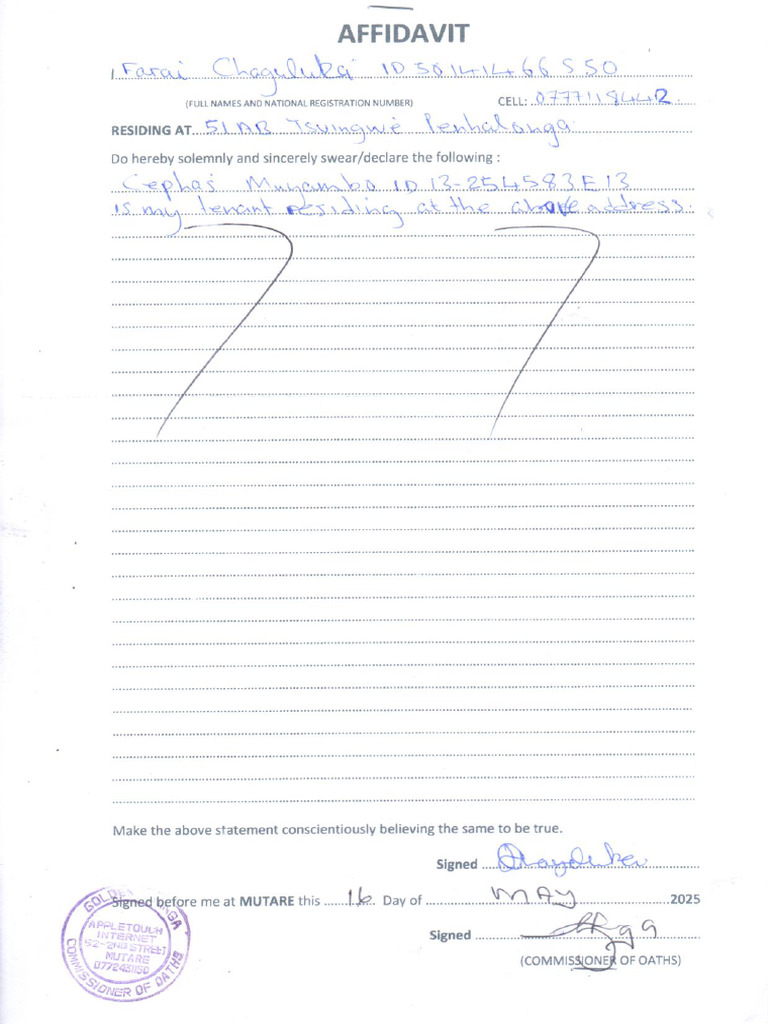 AFFIDAVIT
I Farai Chaguluka ID 50141466 S50
(FULL NAMES AND NATIONAL REGISTRATION NUMBER) CELL: 0777118442
RESIDING AT 51AB Tsvingwe Penhalonga
Do hereby solemnly and sincerely swear/declare the following :
Cephas Muyambo ID 13-254583 E 13
is my tenant residing at the above address.
Make the above statement conscientiously believing the same to be true.
Signed
Signed before me at MUTARE this 16 Day of MAY 2025
Signed
(COMMISSIONER OF OATHS)
APPLETOUCH
INTERNET
52-2ND STREET
MUTARE
COMMISSIONER OF OATHS